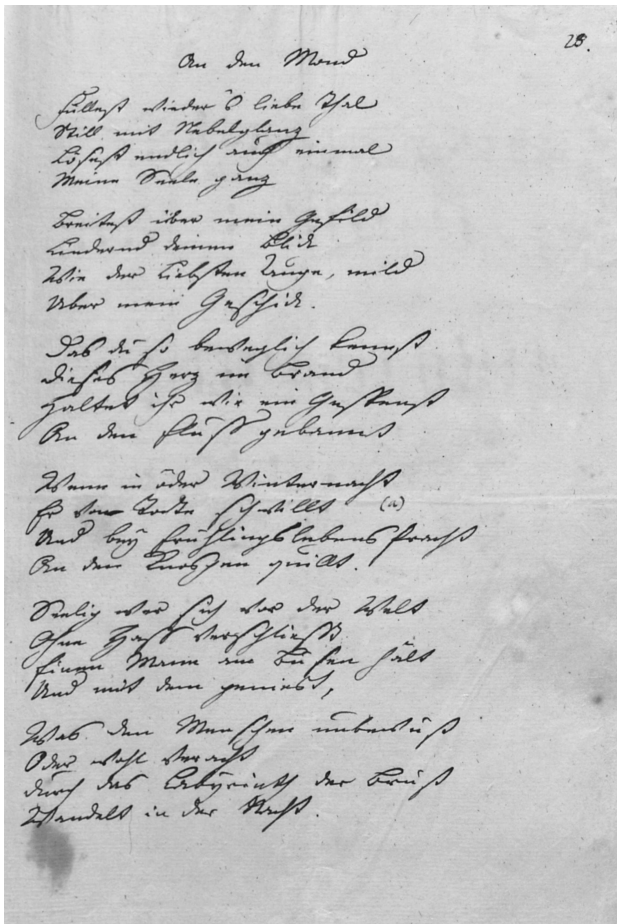 28.
An den Mond
Füllest wieder's liebe Thal
Still mit Nebelglanz
Lösest endlich auch einmal
Meine Seele ganz
Breitest über mein Gefild
Lindernd deinen Blick
Wie der Liebsten Auge, mild
Über mein Geschick.
Das du so beweglich kennst
Dieses Herz im Brand
Haltet ihr wie ein Gespenst
An den Fluss gebannt
Wenn in öder Winternacht
Er vom Todte schwillt (a)
Und bey Frühlingslebens Pracht
An den Knospen quillt.
Seelig wer sich vor der Welt
Ohne Hass verschliesst
Einen Mann am Busen hält
Und mit dem geniest,
Was den Menschen unbewusst
Oder wohl veracht
durch das Labyrinth der Brust
Wandelt in der Nacht.